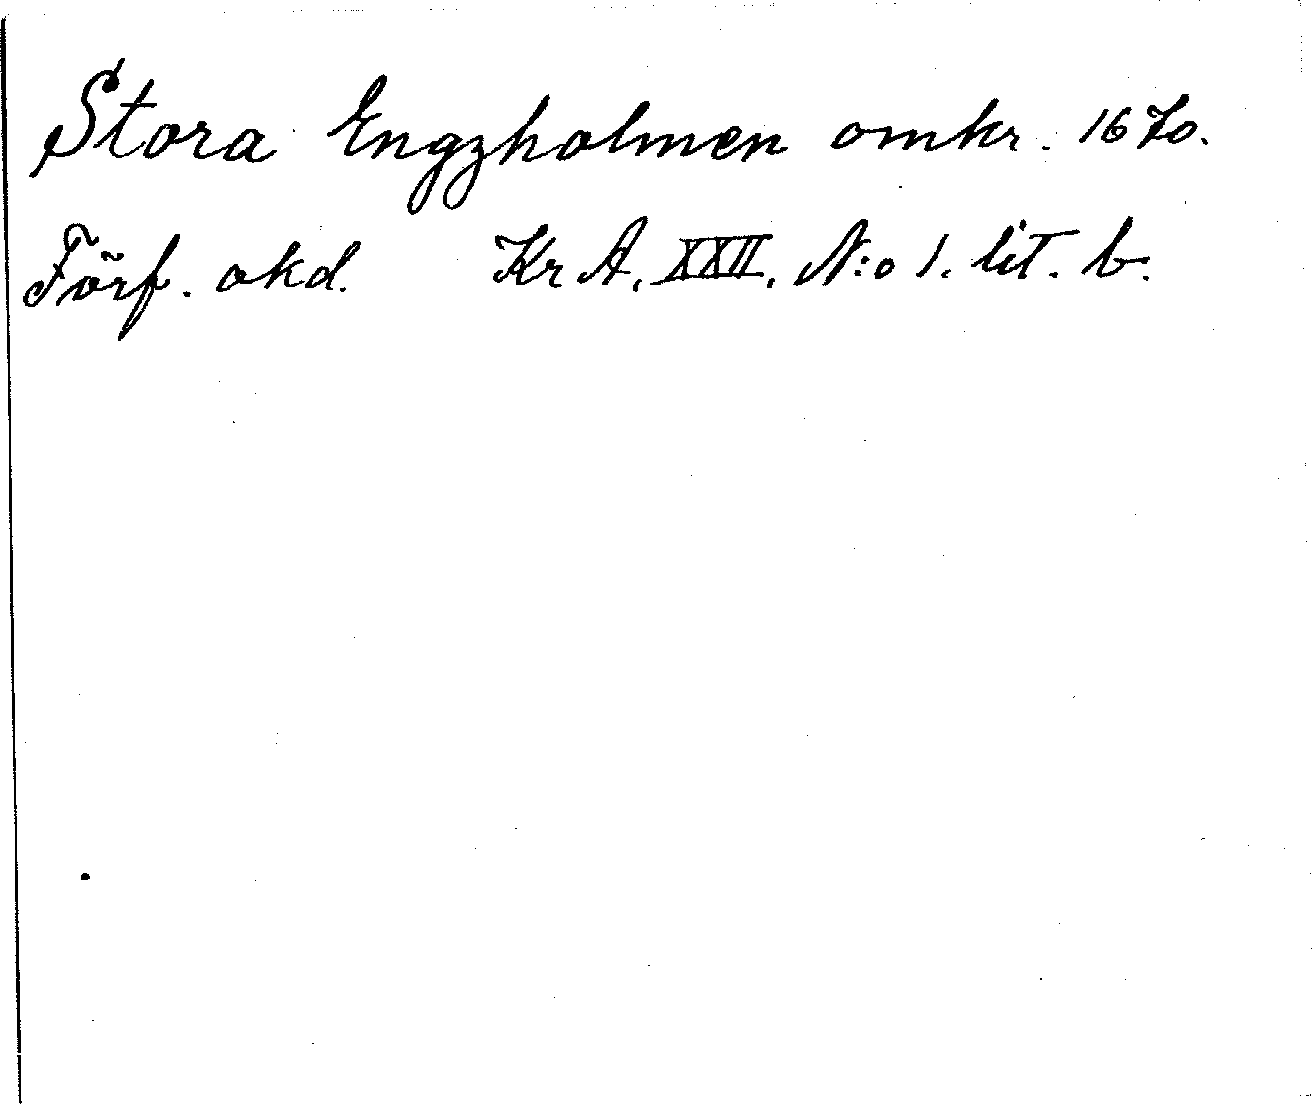 Stora Engzholmen omkr. 1670.
Förf. okd. Kr A. XXII. N:o 1. lit. b.